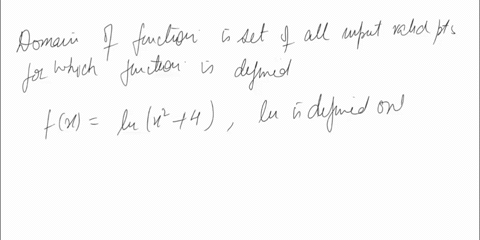 Domain of function is set of all input valid pts
for which function is defined
f(x) = ln(x²+4), ln is defined onl